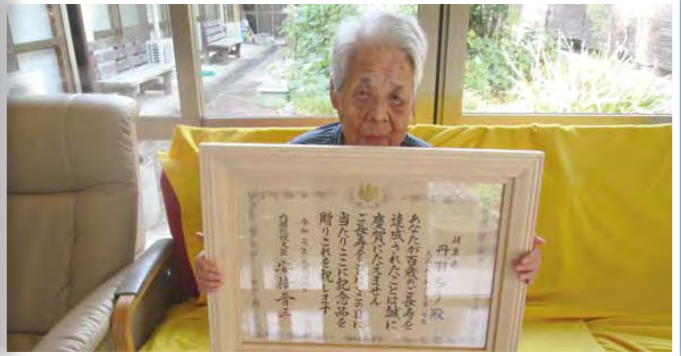 岐阜県
丹羽ちり殿
あなたが百歳のご長寿を
達成されたことは誠に
慶賀にたえません
ご長寿をことほぐこの日に
当たりここに記念品を
贈りこれを祝します
令和元年
内閣総理大臣 安倍晋三